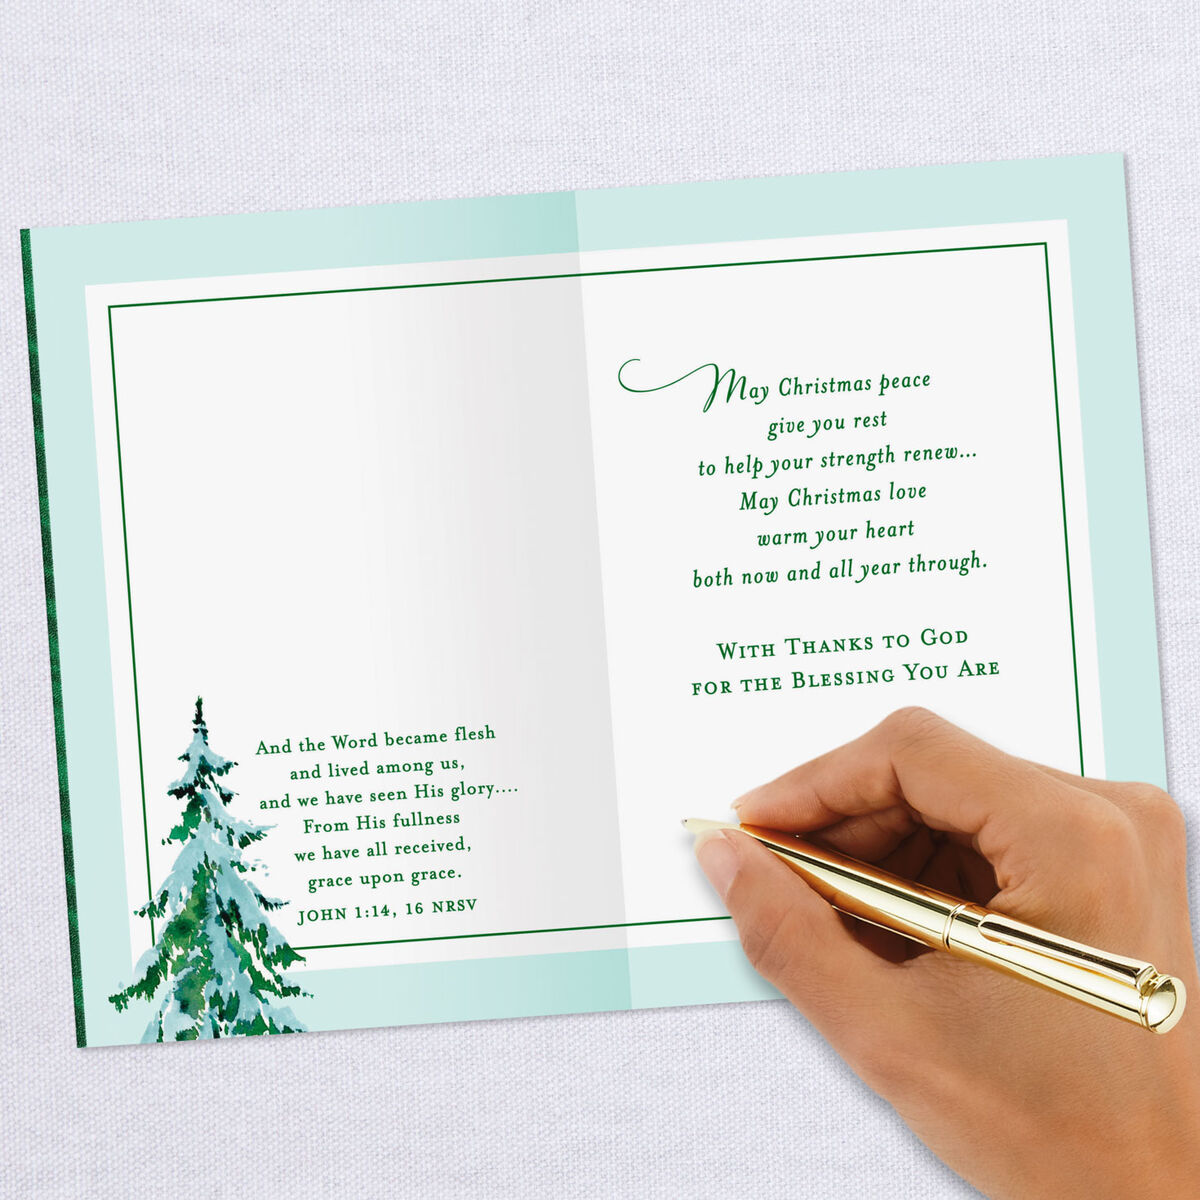 And the Word became flesh
and lived among us,
and we have seen His glory....
From His fullness
we have all received,
grace upon grace.
JOHN 1:14, 16 NRSV
May Christmas peace
give you rest
to help your strength renew...
May Christmas love
warm your heart
both now and all year through.
WITH THANKS TO GOD
FOR THE BLESSING YOU ARE